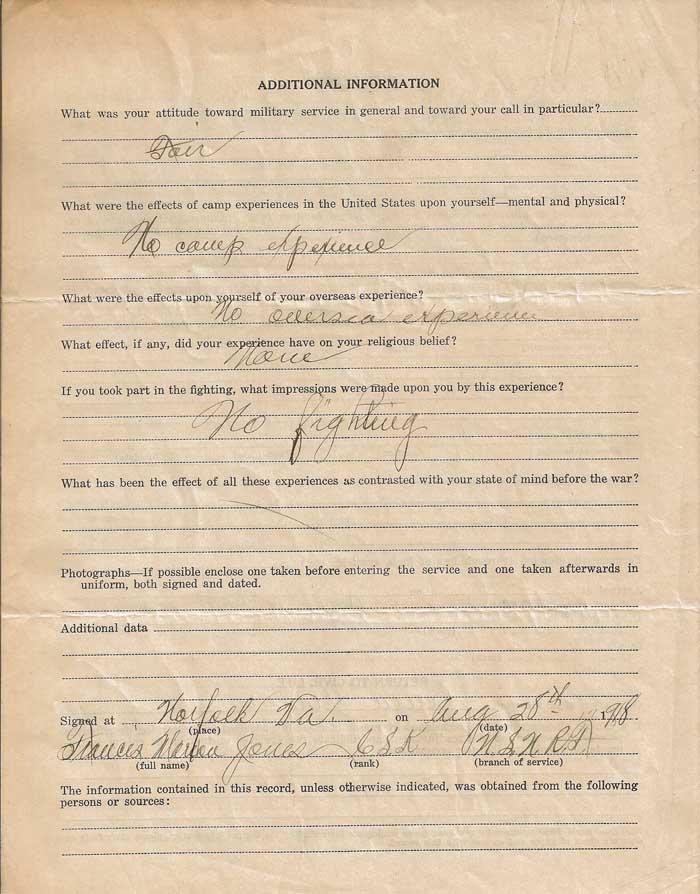 ADDITIONAL INFORMATION
What was your attitude toward military service in general and toward your call in particular?
Fair
What were the effects of camp experiences in the United States upon yourself—mental and physical?
No camp experience
What were the effects upon yourself of your overseas experience?
No oversea experience
What effect, if any, did your experience have on your religious belief?
None
If you took part in the fighting, what impressions were made upon you by this experience?
No fighting
What has been the effect of all these experiences as contrasted with your state of mind before the war?
Photographs—If possible enclose one taken before entering the service and one taken afterwards in
uniform, both signed and dated.
Additional data
Signed at Norfolk Va. on Aug 28th 1918
(place) (date)
Francis Jones U.S.N.R.F.
(full name) (rank) (branch of service)
The information contained in this record, unless otherwise indicated, was obtained from the following
persons or sources: